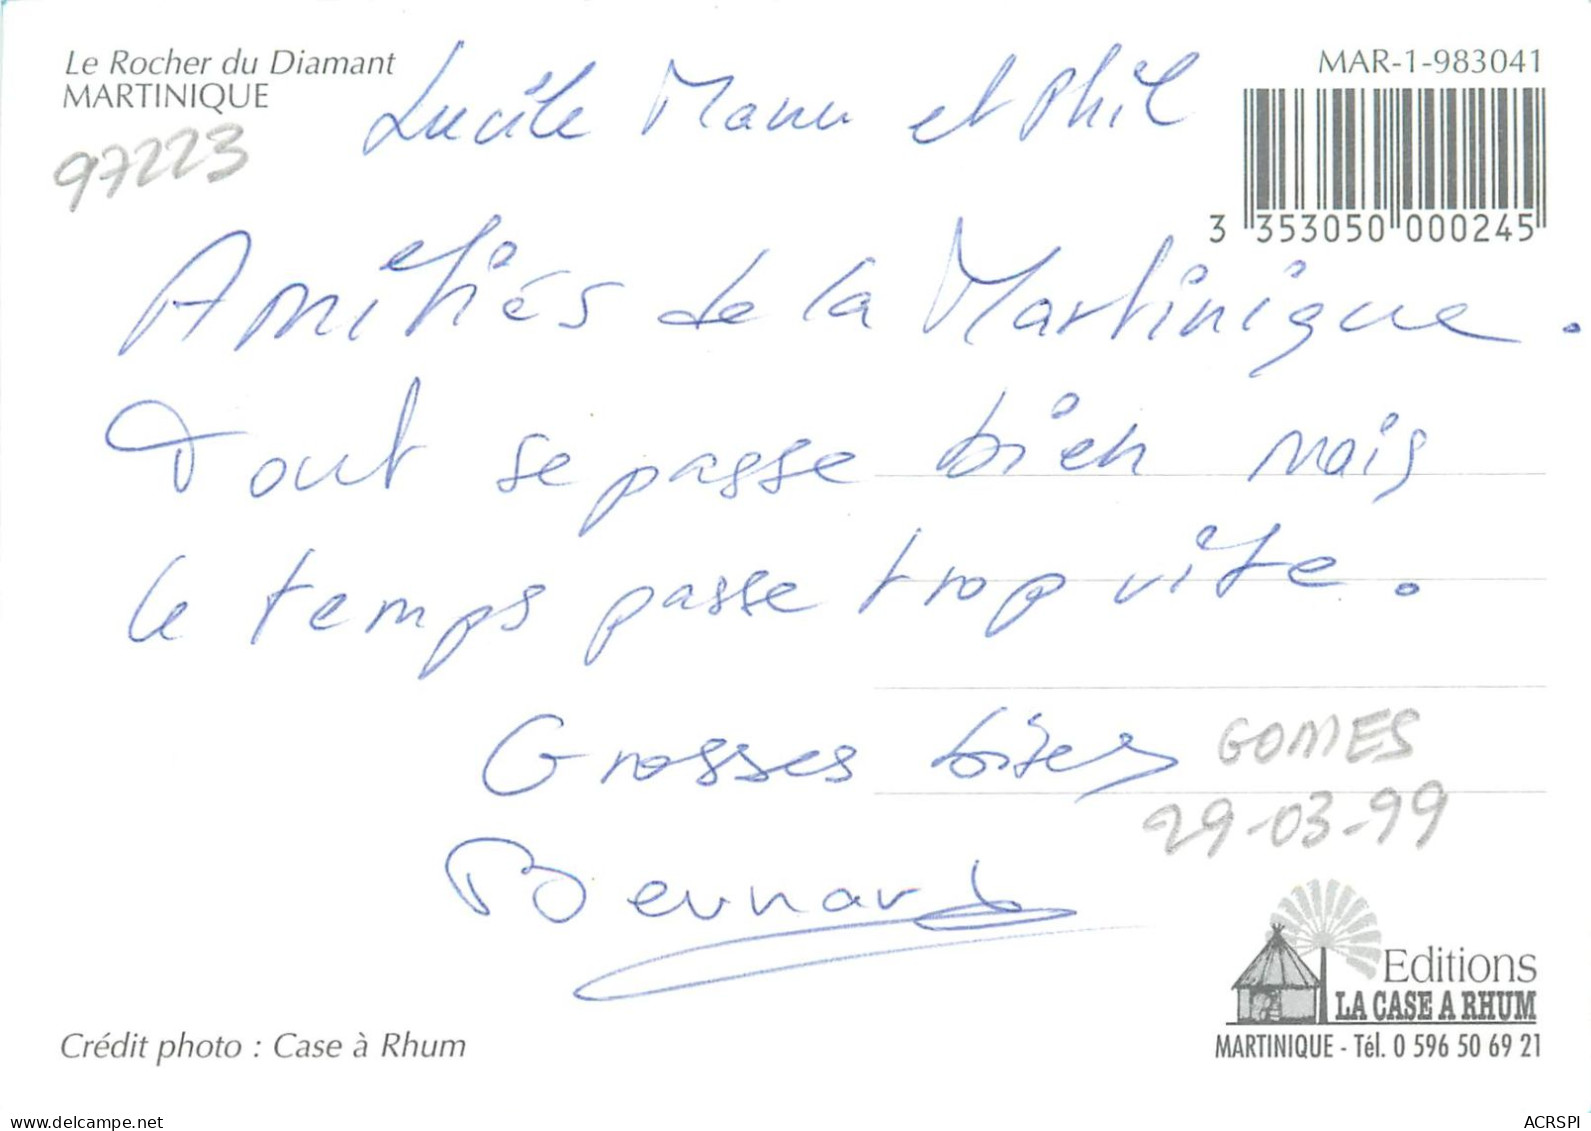 Le Rocher du Diamant
MARTINIQUE
97223
Lucile Manu et Phil
MAR-1-983041
3 353050 000245
Amitiés de la Martinique.
Tout se passe bien mais
le temps passe trop vite.
Grosses bises
GOMES
29-03-99
Bernard
Editions
LA CASE A RHUM
MARTINIQUE - Tél. 0 596 50 69 21
Crédit photo : Case à Rhum
www.delcampe.net
ACRSPI